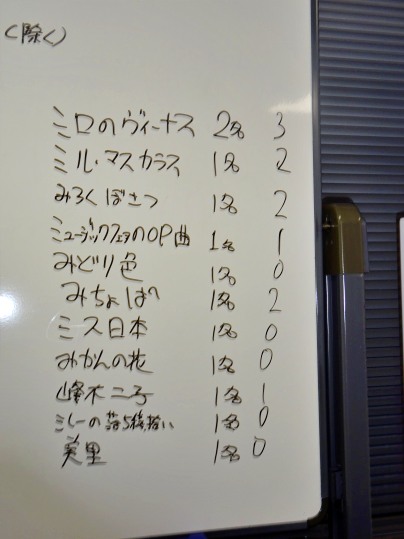 (除く)
ミロのヴィーナス 2名 3
ミル・マスカラス 1名 2
みろくぼさつ 1名 2
ミュージックフェアのOP曲 1名 1
みどり色 1名 0
みちょぱ 1名 2
ミス日本 1名 0
みかんの花 1名 0
峰不二子 1名 1
ミレーの落ち穂拾い 1名 0
美里 1名 0